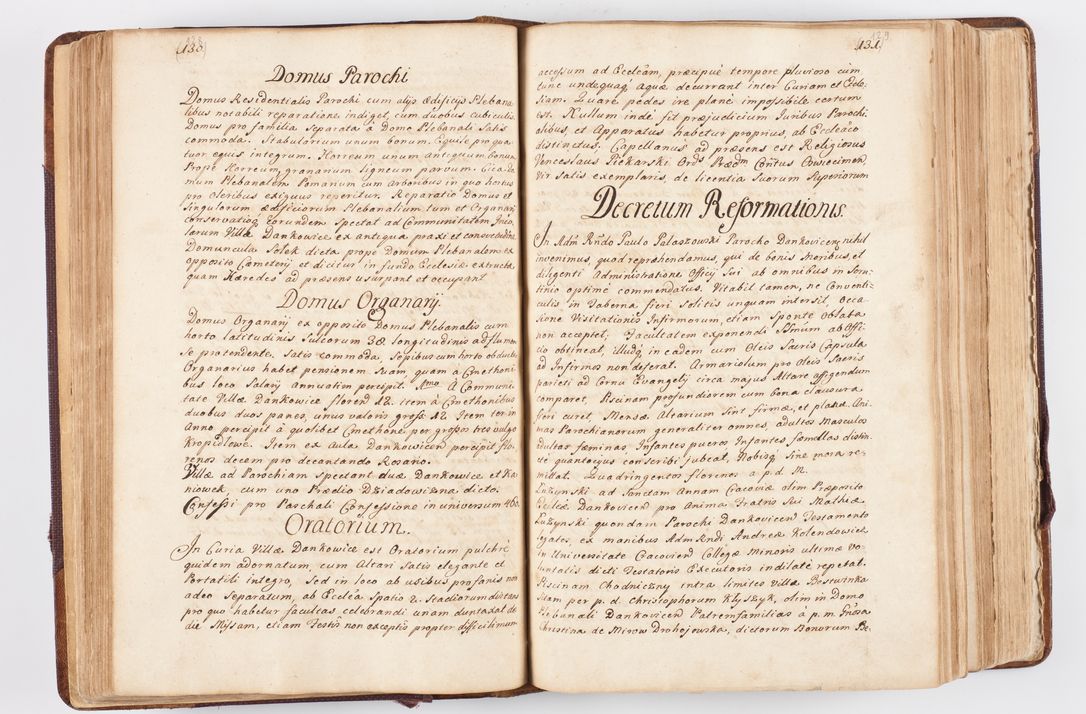 130.
Domus Parochi
Domus Residentialis Parochi, cum alijs ædificijs Plebana-
libus notabili reparatione indiget, cum duobus cubiculis.
Domus pro familia Separata à Domo Plebanali Satis
commoda. Stabulorum unum bonum. Equile pro qua-
tuor equis integrum. Horreum unum antiquum, bonum.
Prope Horreum, granarium ligneum parvum. Circa Do-
mum Plebanalem Pomarium cum arboribus in quo hortus
pro oleribus exiguus reperitur. Reparatio Domus et
Singulorum ædificiorum Plebanalium tum et Organarij
conservatioq́ eorundem Spectat ad Communitatem Inco-
larum Villæ Dankowice ex antiqua praxi et consvetudine.
Domuncula Sołek dicta prope Domum Plebanalem ex
opposito Cœmeterij et dicitur in fundo Ecclesiæ extructa,
quam Hæredes ad præsens usurpant et occupant.
Domus Organarij
Domus Organarij ex opposito Domus Plebanalis cum
horto latitudinis Sulcorum 38 longitudinis ad flumen
se protendente. Satis commoda, Sepibus cum horto obducta.
Organarius habet pensionem Suam, quam a Cmethoni-
bus loco Salarij annuatim percipit. Amo. A Communi-
tate Villæ Dankowice floren̄ 12. item à Cmethonibus
duobus duos panes, unus valoris gross: 12. Item ter in
Anno percipit à quolibet Cmethone per grossos tres vulgo
Kropidłowe. Item ex Aula Dankovicen̄ percipit flo-
renos decem pro decantando Rosario.
Villæ ad Parochiam Spectant duæ Dankowice et Ka-
niowek, cum uno Prædio Dziadowizna dicto.
Confessi pro Paschali Confessione in universum 460.
Oratorium.
In Curia Villæ Dankowice est Oratorium pulchrè
quidem adornatum, cum Altari Satis elegante et
Portatili integro, Sed in loco ab usibus profanis non
adeo Separatum, ab Ecclēa Spatio 2. Stadiorum distans
pro quo habetur facultas celebrandi unam duntaxat de
die Missam, etiam Festis non exceptis propter difficilimum
131.
accessum ad Ecclēam, præcipuè tempore pluvioso cùm
tunc undequaq́ aquæ decurrant inter Curiam et Eccle-
siam. Quare pedes ire planè impossibile certum
est. Nullum inde fit præjudicium Juribus Parochi-
alibus, et Apparatus habetur proprius, ab Ecclēaco
distinctus. Capellanus ad præsens est Religiosus
Venceslaus Piekarski Ord̄s Præd̄m Con̄tus Osviecimen̄,
vir satis exemplaris, de licentia Suorum Superiorum
Decretum Reformationis.
In Adm̄ Rn̄do Paulo Pałaszowski Parocho Dankovicen̄ nihil
invenimus, quod reprehendamus, qui de bonis moribus, et
diligenti administratione Officij Sui ab omnibus in Scru-
tinio optimè commendatus. Vitabit tamen, ne Conventi-
culis in Taberna fieri Solitis unquam intersit, occa-
sione Visitationis Infirmorum, etiam Sponte oblata
non acceptet; Facultatem exponendi SSm̄um ab Offi-
cio obtineat, illudq́ in eadem cum Oleis Sacris Capsula
ad Infirmos non deferat. Armariolum pro Oleis Sacris
parieti ad Cornu Evangelij circa majus Altare affigendum
comparet, Piscinam profundiorem cum bona clausura
fieri curet, Mensæ Altarium Sint firmæ, et planæ. Ani-
mas Parochianorum generaliter omnes, adultos Masculos
adultas fæminas, Infantes pueros Infantes fæmellas distin-
cte quantocyus conscribi jubeat, Nobisq́ sine mora re-
mittat. Quadringentos florenos a p. d. M.
Łuzynski ad Sanctam Annam Cracoviæ olim Præposito
Ecclēæ Dankovicen̄ pro Anima Fratris Sui Mathiæ
Łuzynski quondam Parochi Dankovicen̄ Testamento
legatos, ex manibus Adm Rndi Andreæ Kolendowicz
in Universitate Cracovien̄ Collegæ Minoris ultimæ vo-
luntatis dicti Testatoris Executoris indilatè repetat.
Piscinam Chodniczny intra limites Villæ Bestwinka
Sitam per p. d. Christophorum Kłyszyk, olim in Domo
Plebanali Dankovicen̄ Patremfamilias à p. m. Gn̄osa
Christina de Mirow Drohojowska, dictorum Bonorum Be-